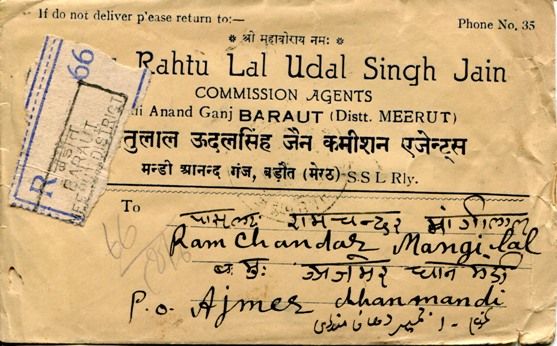 If do not deliver p'ease return to:—
Phone No. 35
* श्री महावीराय नमः *
Rahtu Lal Udal Singh Jain
COMMISSION AGENTS
Anand Ganj BARAUT (Distt. MEERUT)
तुलाल ऊदलसिंह जैन कमीशन एजेन्ट्स
मन्डी आनन्द गंज, बड़ौत (मेरठ) S.S L Rly.
R 66
बड़ौत
BARAUT
To
66
Ram Chandar Mangi lal
अजमेर धान मंडी
P.o. Ajmer dhanmandi